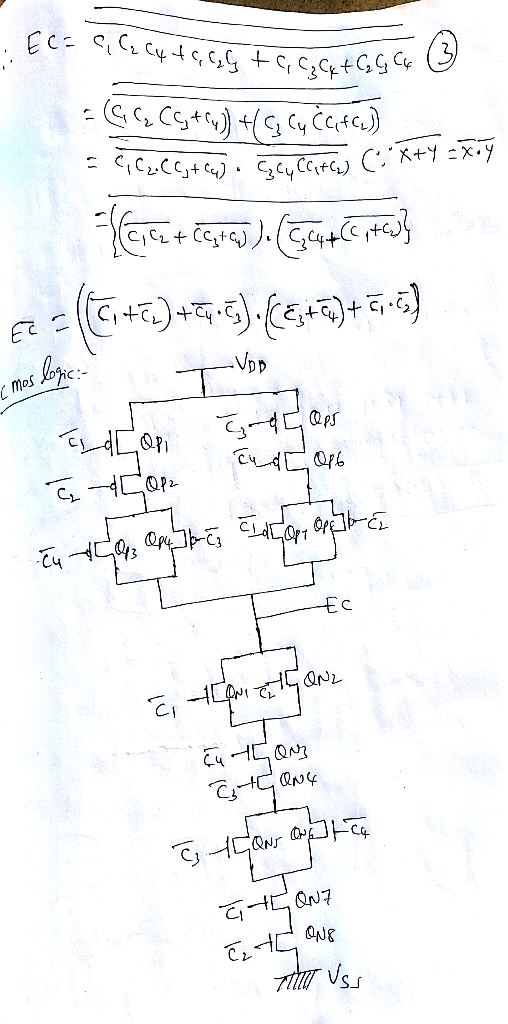 ∴ EC = C₁C₂C₄ + C₁C₂C₃ + C₁C₃C₄ + C₂C₃C₄ ③
= (C₁C₂(C₃+C₄)) + (C₃C₄(C₁+C₂))
= C₁C₂.(C₃+C₄) . C₃C₄(C₁+C₂) (∵ X+Y = X̄.Ȳ
= {(C₁C₂ + (C₃+C₄)) . (C₃C₄ + (C₁+C₂)}
EC = ((C̄₁+C̄₂) + C̄₄.C̄₃) . ((C̄₃+C̄₄) + C̄₁.C̄₂)
cmos logic:-
VDD
C̄₁ QP1 C̄₃ QP5
C̄₂ QP2 C̄₄ QP6
C̄₄ QP3 QP4 C̄₃ C̄₁ QP7 QP8 C̄₂
EC
C̄₁ QN1 C̄₂ QN2
C̄₄ QN3
C̄₃ QN4
C̄₃ QN5 QN6 C̄₄
C̄₁ QN7
C̄₂ QN8
VSS